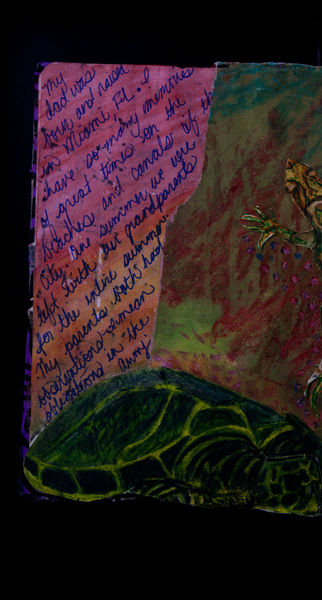 My
dad was
born and raised
in Miami, FL. I
have so many memories
of great times on the
beaches and canals of the
City. One summer we were
left with our grandparents
for the entire summer.
My parents both had
observations I mean
obsessions in the
army